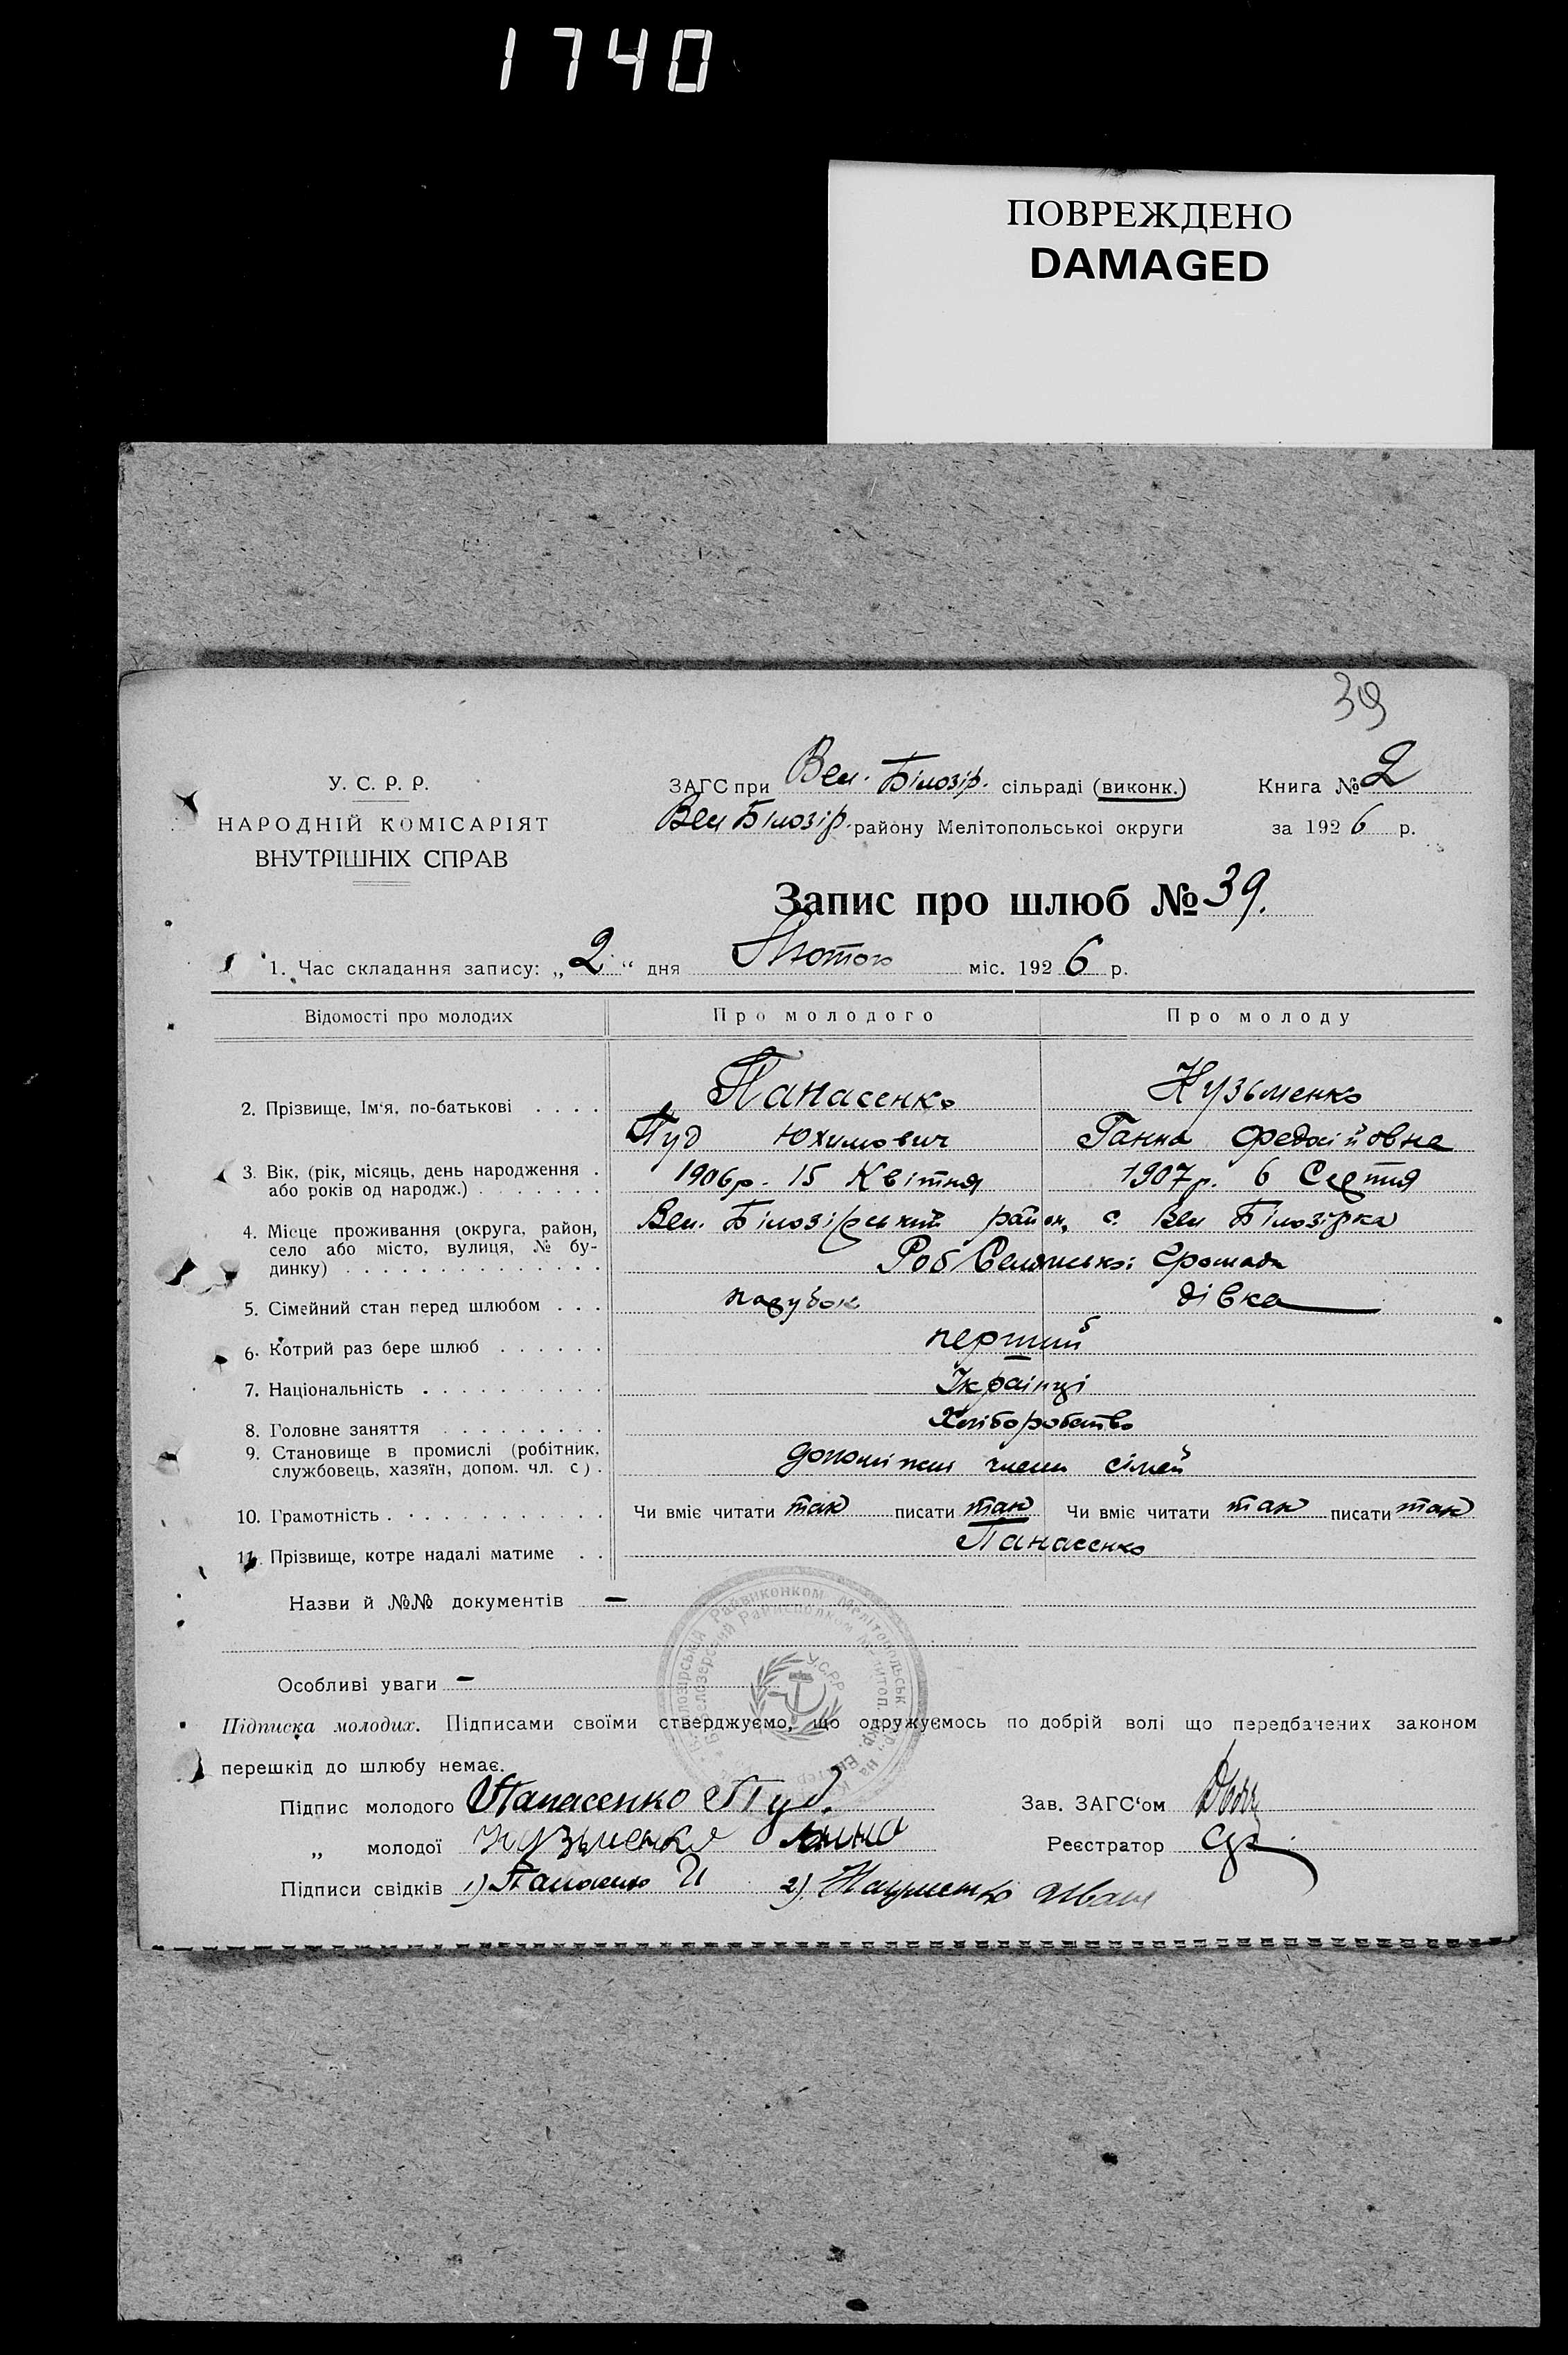 1740
ПОВРЕЖДЕНО
DAMAGED
39
У. С. Р. Р.
НАРОДНІЙ КОМІСАРІЯТ
ВНУТРІШНІХ СПРАВ
ЗАГС при Вел. Білозір. сільраді (виконк.)
Вел Білозір. району Мелітопольськоі округи
Книга № 2
за 1926 р.
Запис про шлюб № 39.
1. Час складання запису: „2" дня Лютого міс. 1926 р.
Відомості про молодих Про молодого Про молоду
2. Прізвище, Ім'я, по-батькові . . . . Панасенко Кузьменко
Пуд Юхимович Ганна Федосійовна
3. Вік, (рік, місяць, день народження . 1906р. 15 Квітня 1907р. 6 Серпня
або років од народж.) . . . . . . .
4. Місце проживання (округа, район, Вел. Білозірський район, с. Вел Білозірка
село або місто, вулиця, № бу-
динку) . . . . . . . . . . . . . . Роб Селянської громади
5. Сімейний стан перед шлюбом . . . парубок дівка
6. Котрий раз бере шлюб . . . . . . перший
7. Національність . . . . . . . . . . Українці
8. Головне заняття . . . . . . . . . Хліборобство
9. Становище в промислі (робітник,
службовець, хазяїн, допом. чл. с) . допоміжні члени сімей
10. Грамотність . . . . . . . . . . . . Чи вміє читати так писати так Чи вміє читати так писати так
11. Прізвище, котре надалі матиме . . Панасенко
Назви й №№ документів —
Особливі уваги —
Підписка молодих. Підписами своїми стверджуємо, що одружуємось по добрій волі що передбачених законом
перешкід до шлюбу немає.
Підпис молодого Панасенко Пуд.
„ молодої Кузьменко Анна
Підписи свідків 1) Панасенко И 2) Иван
Зав. ЗАГС'ом
Реєстратор
Райвиконком Мелітопольськ
Райисполком
У.С.Р.Р